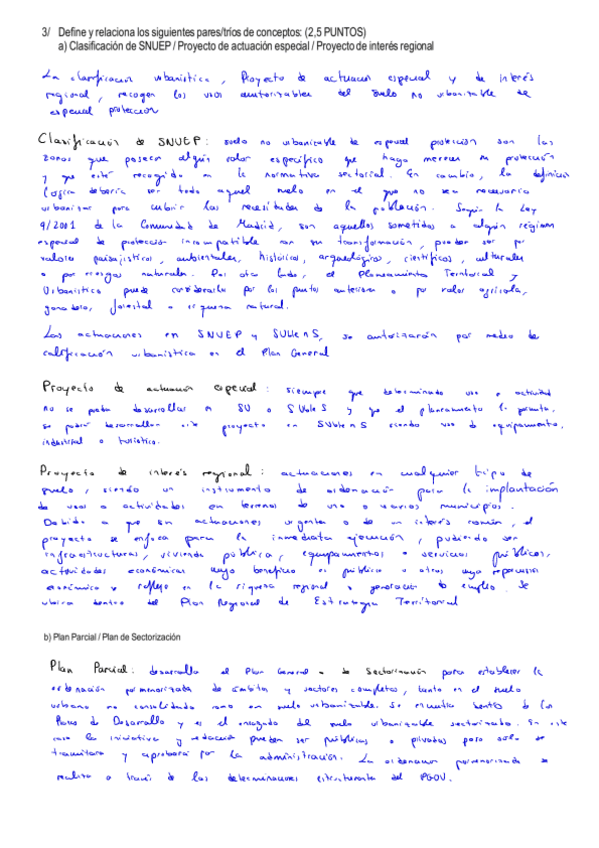 3/ Define y relaciona los siguientes pares/tríos de conceptos: (2,5 PUNTOS)
a) Clasificación de SNUEP / Proyecto de actuación especial / Proyecto de interés regional
La clasificacion urbanistica, Proyecto de actuacion especial y de Interés
regional, recogen los usos autorizables del suelo no urbanizable de
especial proteccion
Clasificación de SNUEP: suelo no urbanizable de especial protección son las
zonas que poseen algún valor específico que haga merecer su protección
y que esté recogido en la normativa sectorial. En cambio, la definición
logica debería ser todo aquel suelo en el que no sea necesario
urbanizar para cubrir las necesidades de la población. Según la Ley
9/2001 de la Comunidad de Madrid, son aquellos sometidos a algún régimen
especial de protección incompatible con su transformación, pueden ser por
valores paisajísticos, ambientales, históricos, arqueológicos, científicos, culturales
o por riesgos naturales. Por otro lado, el Planeamiento Territorial y
Urbanístico puede considerarlo por los puntos anteriores o por valor agrícola,
ganadero, forestal o riqueza natural.
Las actuaciones en SNUEP y SUbleNS, se autorizarán por medio de
calificación urbanística en el Plan General
Proyecto de actuación especial: siempre que determinado uso o actividad
no se pueda desarrollar en SU o SUbleS y que el planeamiento lo permita,
se podrá desarrollar este proyecto en SUbleNS siendo uso de equipamiento,
industrial o turístico.
Proyecto de interés regional: actuaciones en cualquier tipo de
suelo, siendo un instrumento de ordenación para la implantación
de usos o actividades en terrenos de uno o varios municipios.
Debido a que son actuaciones urgentes o de un interés común, el
proyecto se enfoca para la inmediata ejecución, pudiendo ser
infraestructuras, vivienda pública, equipamientos o servicios públicos,
actividades económicas cuyo beneficio es público u otros cuya repercusión
económica se refleje en la riqueza regional o generación de empleo. Se
ubica dentro del Plan Regional de Estrategia Territorial
b) Plan Parcial / Plan de Sectorización
Plan Parcial: desarrolla el Plan General o de Sectorización para establecer la
ordenación pormenorizada de ámbitos y sectores completos, tanto en el suelo
urbano no consolidado como en suelo urbanizable. Se encuentra dentro de los
Planes de Desarrollo y es el encargado del suelo urbanizable sectorizado. En este
caso la iniciativa y redacción pueden ser públicas o privadas pero sólo se
tramitará y aprobará por la administración. La ordenación pormenorizada se
realiza a través de las determinaciones estructurantes del PGOU.